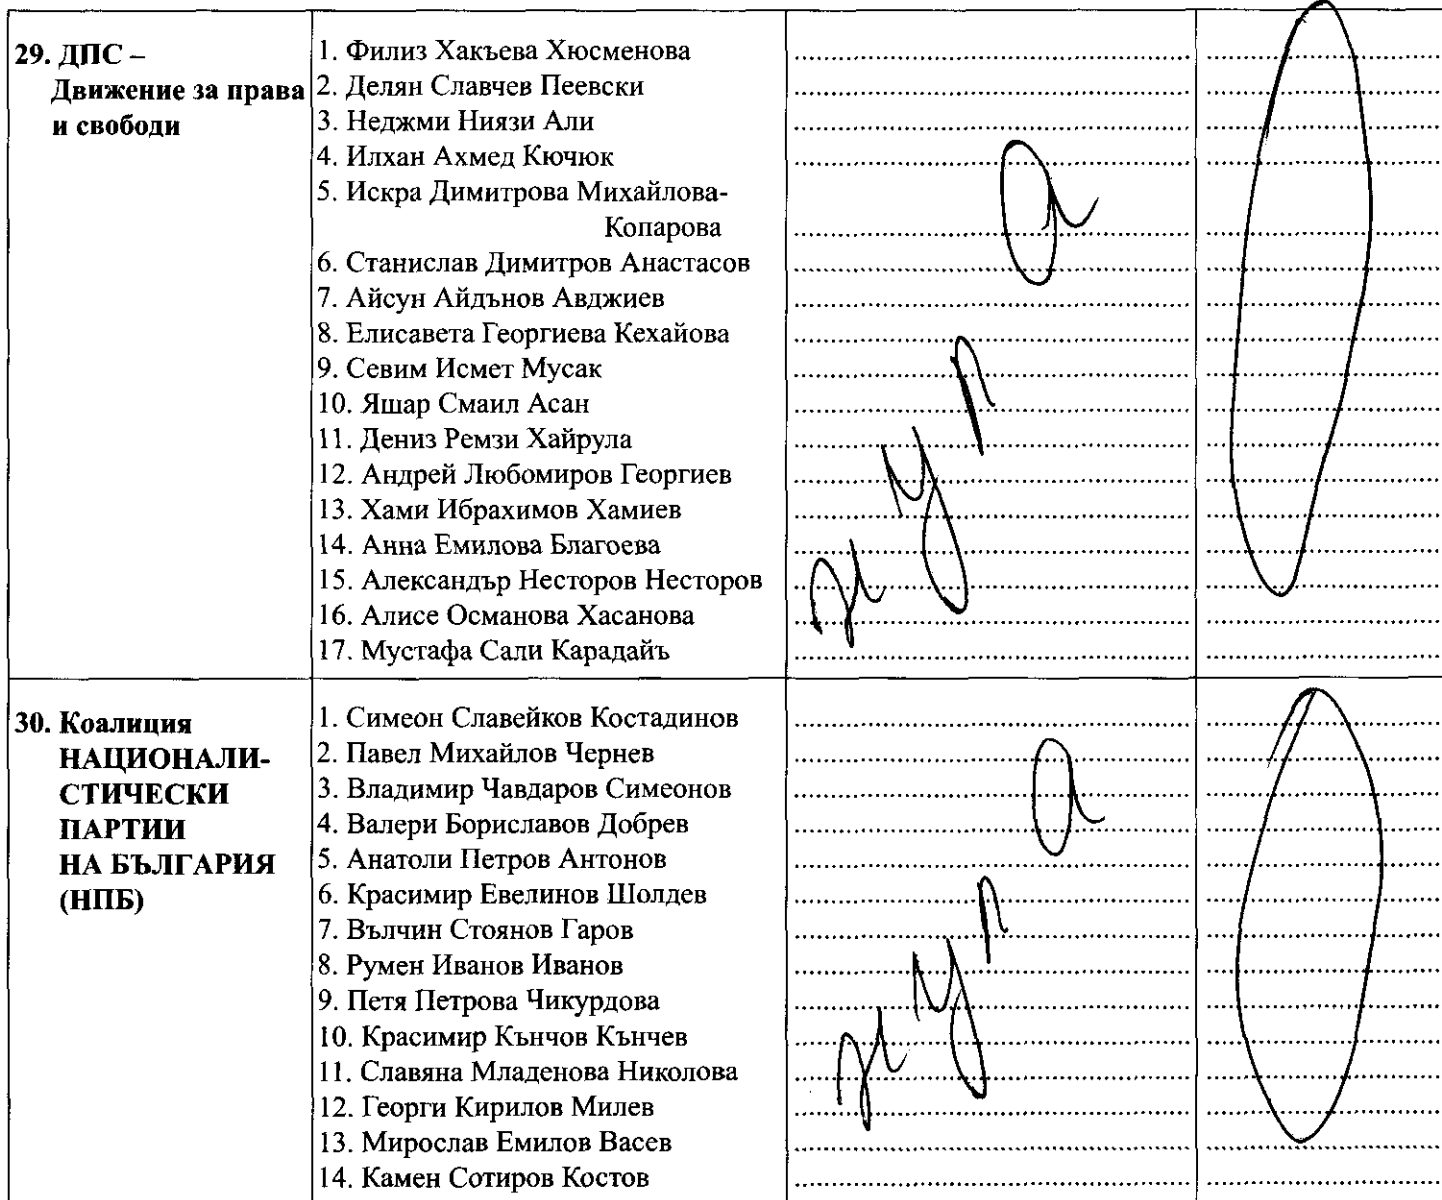 29. ДПС –
Движение за права
и свободи
1. Филиз Хакъева Хюсменова
2. Делян Славчев Пеевски
3. Неджми Ниязи Али
4. Илхан Ахмед Кючюк
5. Искра Димитрова Михайлова-
Копарова
6. Станислав Димитров Анастасов
7. Айсун Айдънов Авджиев
8. Елисавета Георгиева Кехайова
9. Севим Исмет Мусак
10. Яшар Смаил Асан
11. Дениз Ремзи Хайрула
12. Андрей Любомиров Георгиев
13. Хами Ибрахимов Хамиев
14. Анна Емилова Благоева
15. Александър Несторов Несторов
16. Алисе Османова Хасанова
17. Мустафа Сали Карадайъ
нула
0
30. Коалиция
НАЦИОНАЛИ-
СТИЧЕСКИ
ПАРТИИ
НА БЪЛГАРИЯ
(НПБ)
1. Симеон Славейков Костадинов
2. Павел Михайлов Чернев
3. Владимир Чавдаров Симеонов
4. Валери Бориславов Добрев
5. Анатоли Петров Антонов
6. Красимир Евелинов Шолдев
7. Вълчин Стоянов Гаров
8. Румен Иванов Иванов
9. Петя Петрова Чикурдова
10. Красимир Кънчов Кънчев
11. Славяна Младенова Николова
12. Георги Кирилов Милев
13. Мирослав Емилов Васев
14. Камен Сотиров Костов
нула
0